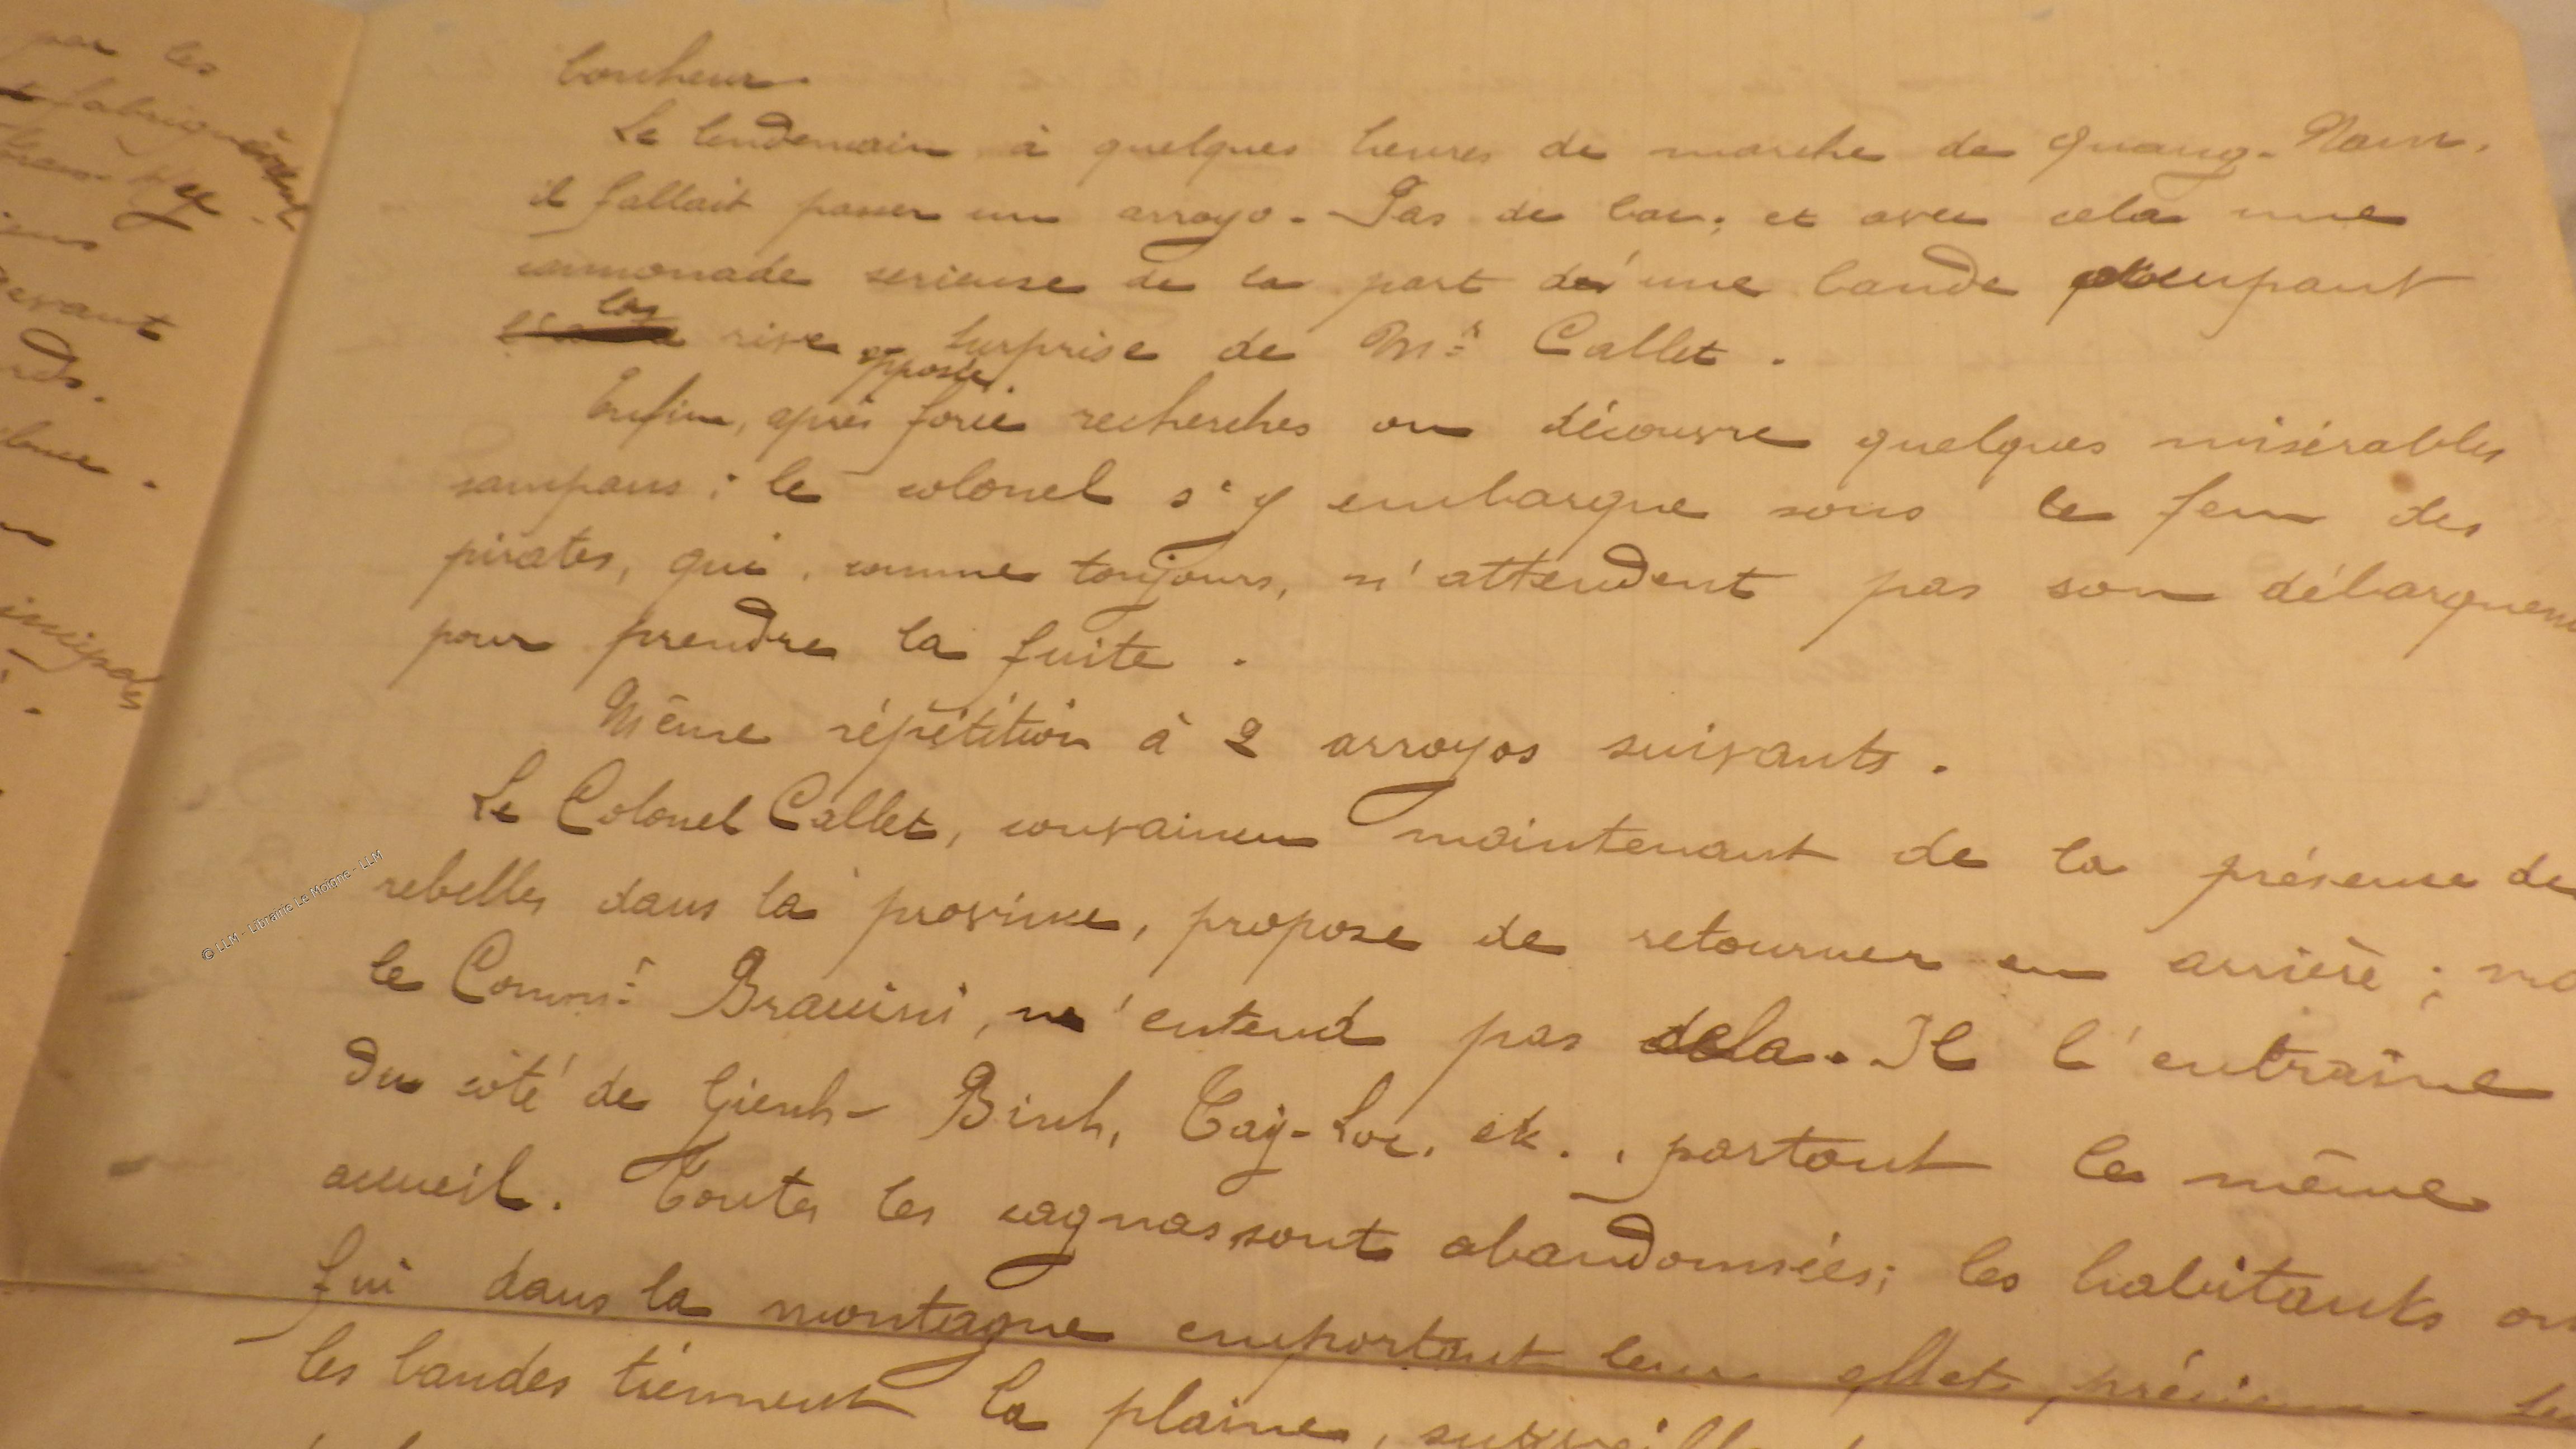 par les
fabriquèrent
evant
rds.
bonheur.
Le lendemain à quelques heures de marche de Quang-Nam,
il fallait passer un arroyo. Pas de bac; et avec cela une
cannonade serieuse de la part d'une bande occupant
la rive opposée. Surprise de Mr Callet.
Enfin, après force recherches on découvre quelques misérables
sampans; le colonel s'y embarque sous le feu des
pirates, qui, comme toujours, n'attendent pas son débarquem
pour prendre la fuite.
Même répétition à 2 arroyos suivants.
Le Colonel Callet, convaincu maintenant de la présence de
rebelles dans la province, propose de retourner en arrière; ma
le Commt Brauini, n'entend pas cela. Il l'entraîne
du côté de Gienh-Binh, Tay-Loc, etc., partout le même
accueil. Toutes les cagnas sont abandonnées; les habitants on
fui dans la montagne emportant leurs effets précieux. Le
les bandes tiennent la plaine,
© LLM - Librairie Le Moigne - LLM